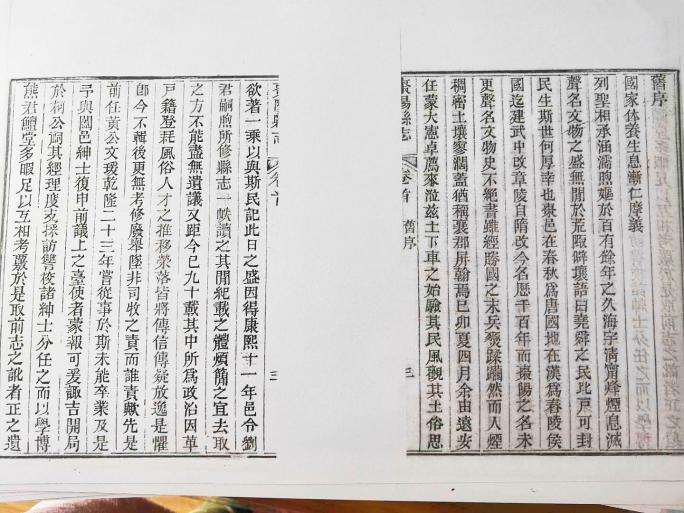 舊序
國家休養生息漸仁摩義
列聖相承涵濡煦嫗於百有餘年之久海宇清甯烽煙息滅
聲名文物之盛無閒於荒陬僻壤語曰堯舜之民比戸可封
民生斯世何厚幸也棗邑在春秋爲唐國地在漢爲舂陵侯
國迄建武中改章陵自隋改今名歷千百年而棗陽之名未
更聲名文物史不絶書雖經勝國之末兵燹蹂躪然而人煙
稠密土壤寥濶蓋猶稱襄郡屏翰焉已卯夏四月余由遠安
任蒙大憲卓薦來涖兹土下車之始驗其民風觀其土俗思
棗陽縣志
卷首
舊序
三
欲著一乘以與斯民記此日之盛因得康熙十一年邑令劉
君嗣煦所修縣志一帙讀之其閒紀載之體煩簡之宜去取
之方不能盡無遺議又距今已九十載其中所爲政治因革
戸籍登耗風俗人才之推移榮落皆將傳信傳疑放逸是懼
卽今不輯後更無考修廢舉墜非司牧之責而誰責歟先是
前任黃公文瑷乾隆二十三年嘗從事於斯未能卒業及是
予與闔邑紳士復申前議上之臺使者蒙報可爰諏吉開局
於祠公同其經理度支採訪讐校諸紳士分任之而以學博
熊君饘堂多暇足以互相考覈於是取前志之訛者正之遺